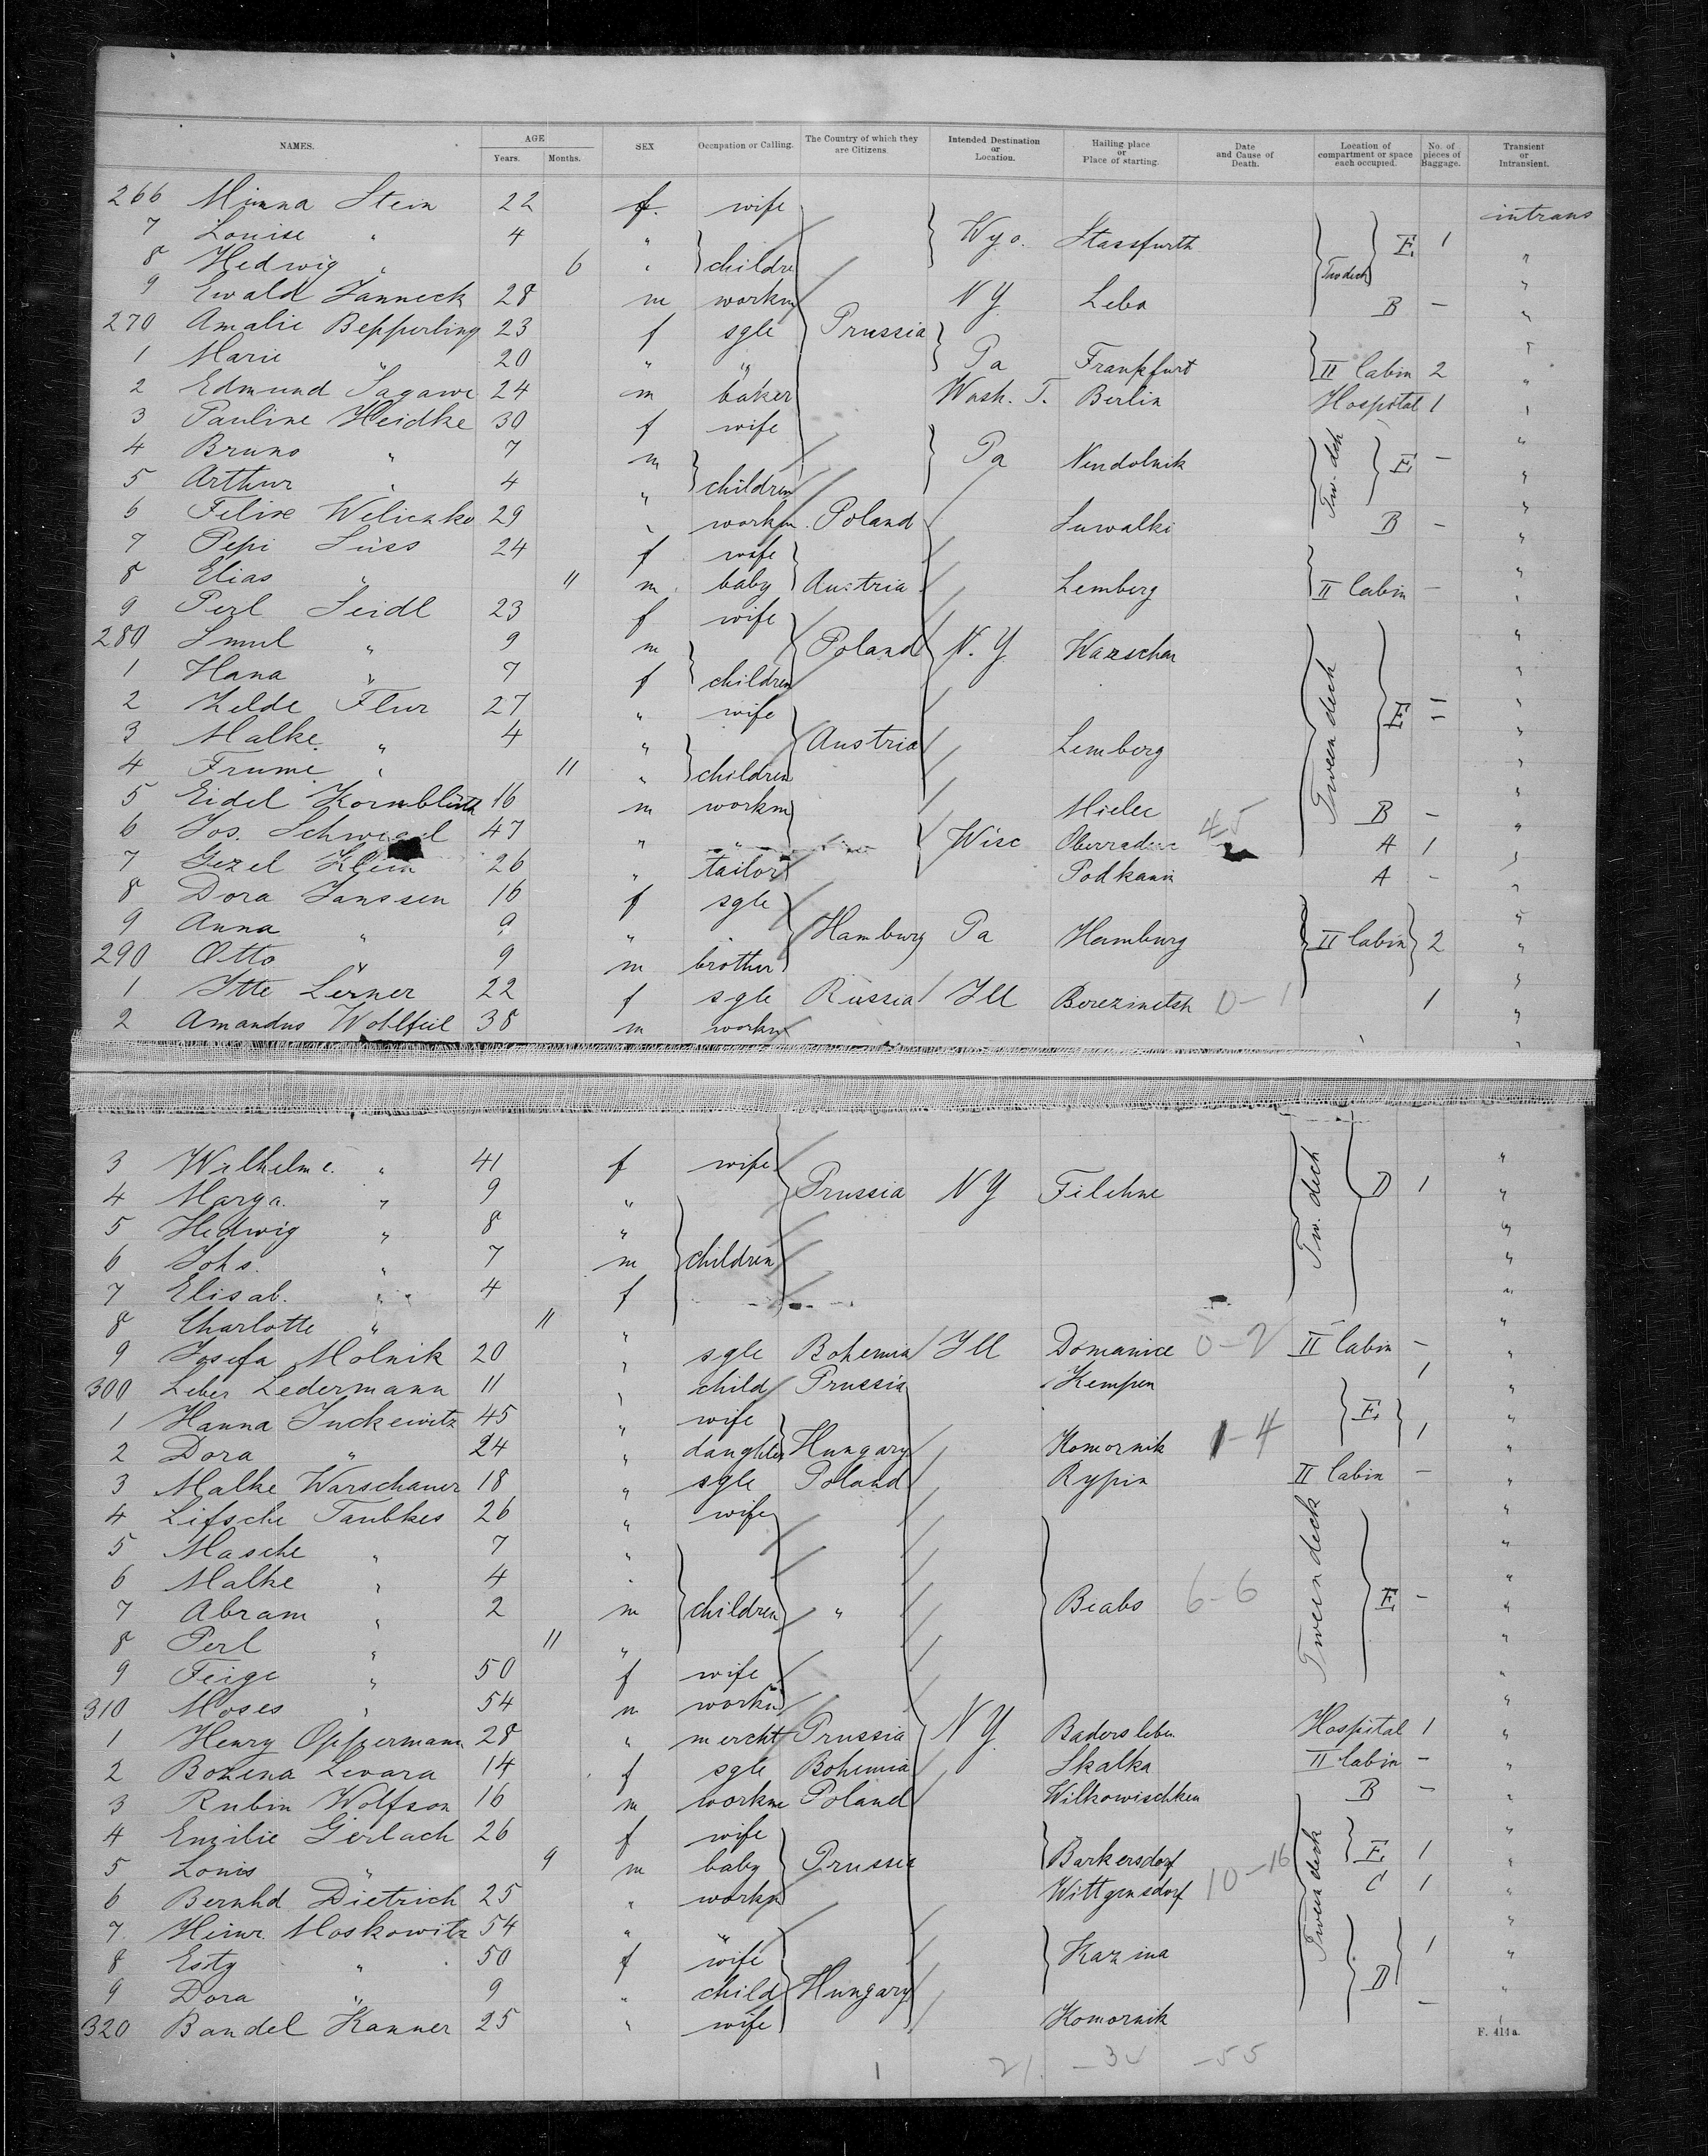 NAMES. AGE Years. Months. SEX Occupation or Calling. The Country of which they are Citizens. Intended Destination or Location. Hailing place or Place of starting. Date and Cause of Death. Location of compartment or space each occupied. No. of pieces of Baggage. Transient or Intransient.
266 Minna Stein 22 f. wife intrans
7 Louise " 4 " Wyo. Stassfurth E. 1 "
8 Hedwig " 6 " children Tw deck "
9 Ewald Janneck 28 m workm N Y Leba B - "
270 Amalie Bepperling 23 f sgle Prussia "
1 Marie " 20 " " Pa Frankfurt II Cabin 2 "
2 Edmund Sagawe 24 m baker Wash. T. Berlin Hospital 1 "
3 Pauline Heidke 30 f wife "
4 Bruno " 7 m Pa Nendolnik Tw. dek E. - "
5 Arthur " 4 " children "
6 Felix Weliczko 29 " workm. Poland Suwalki B - "
7 Pepi Süss 24 f wife "
8 Elias " 11 m. baby Austria Lemberg II Cabin - "
9 Perl Seidl 23 f wife "
280 Smul " 9 m Poland N. Y Warschau "
1 Hana " 7 f children "
2 Zelde Flur 27 " wife Tween deck E - "
3 Malke " 4 " Austria Lemberg - "
4 Frume " 11 " children "
5 Eidel Kornblüth 16 m workm Mielec B - "
6 Jos. 47 " " Wisc 45 A 1 "
7 Gezel Klein 26 " tailor Podkamin A - "
8 Dora Janssen 16 f sgle "
9 Anna " 9 " " Hamburg Pa Hamburg II Cabin 2 "
290 Otto " 9 m brother "
1 Itte Lerner 22 f sgle Russia Ill Berezinetsh 0-1 1 "
2 Amandus Wohlfeil 38 m workm "
3 Wilhelme. " 41 f wife "
4 Marga. " 9 " Prussia N Y Filehne Tw. deck D 1 "
5 Hedwig " 8 " "
6 Johs. " 7 m children "
7 Elisab. " 4 f "
8 Charlotte " 11 " "
9 Josefa Molnik 20 " sgle Bohemia Ill Domanice 0-2 II Cabin - "
300 Leber Ledermann 11 " child Prussia Kempen 1 "
1 Hanna Juckewitz 45 " wife E. "
2 Dora " 24 " daughter Hungary Komornik 1-4 1 "
3 Malke Warschauer 18 " sgle Poland Rypin II Cabin - "
4 Lifsche Taubkes 26 " wife "
5 Masche " 7 " "
6 Malke " 4 " "
7 Abram " 2 m children " Beabs 6-6 Tween deck E. - "
8 Perl " 11 " "
9 Feige " 50 f wife "
310 Moses " 54 m workm "
1 Henry Oppermann 28 " mercht Prussia N Y Badersleben Hospital 1 "
2 Bozena Levara 14 f sgle Bohemia Skalka II Cabin - "
3 Rubin Wolfson 16 m workm Poland Wilkowischken B - "
4 Emilie Gerlach 26 f wife "
5 Louis " 9 m baby Prussia Barkersdorf Tween deck E. 1 "
6 Bernhd Dietrich 25 " workm Wittgensdorf 10-16 C 1 "
7. Heinr Moskowitz 54 " " "
8 Esty " 50 f wife Kazina 1 "
9 Dora " 9 " child Hungary D "
320 Bandel Kanner 25 " wife Komornik - "
F. 414a.
1 21. -30 -55